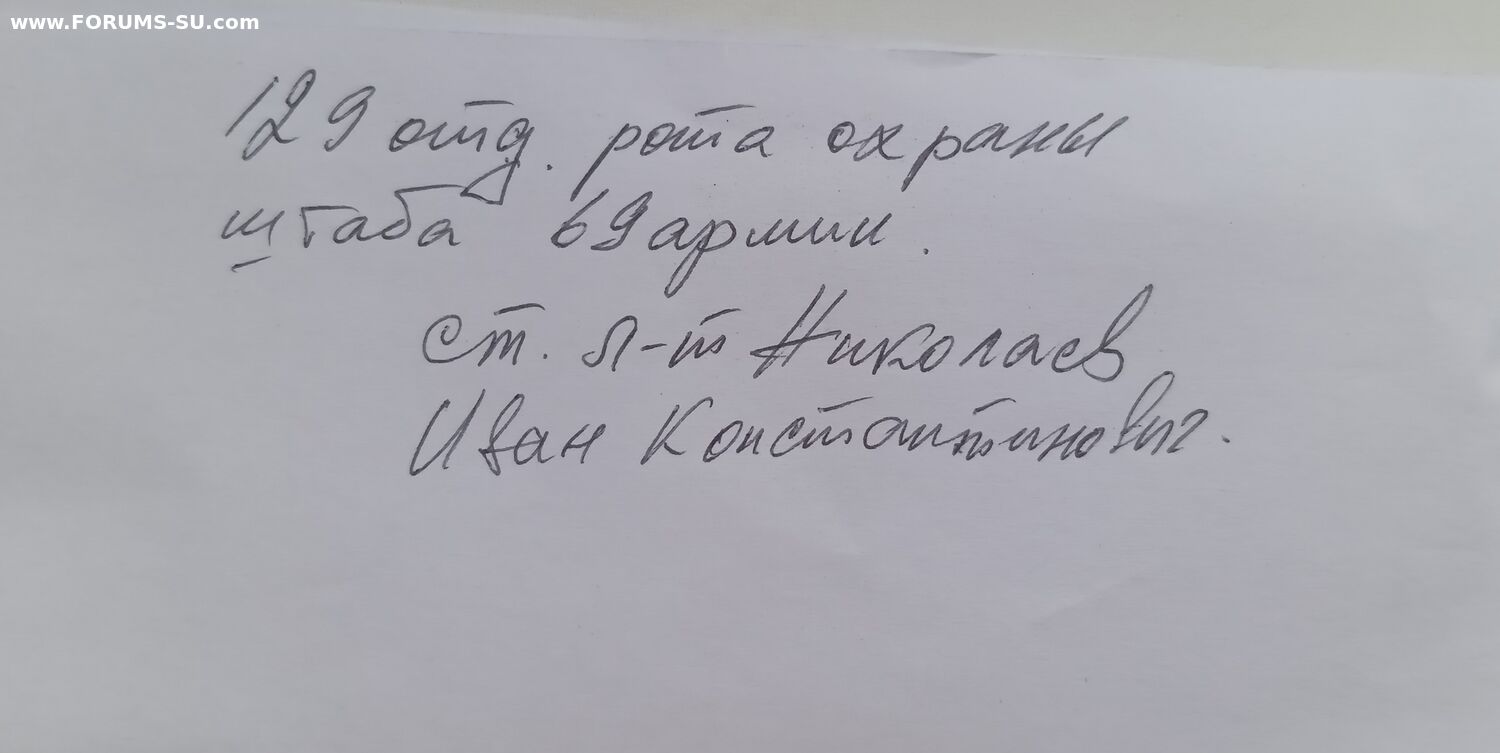 www.FORUMS-SU.com
129 отд. рота охраны
штаба 69 армии.
ст. л-т Николаев
Иван Константинович.